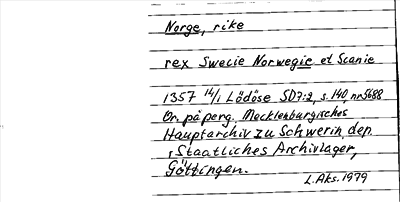 Norge, rike
rex Swecie Norwegie et Scanie
1357 14/1 Lödöse SD7:2, s. 140, nr 5688
Or. på perg. Mecklenburgisches
Hauptarchiv zu Schwerin, dep.
i Staatliches Archivlager,
Göttingen.
L. Aks. 1979